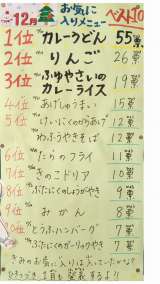 12月 お気に入りメニュー ベスト10
1位 カレーうどん 55票
2位 りんご 26票
3位 ふゆやさいのカレーライス 19票
4位 あげしゅうまい 15票
5位 けいにくのからあげ 12票
5位 わふうやきそば 12票
6位 たらのフライ 11票
7位 きのこドリア 10票
8位 ぶたにくのしょうがやき 9票
9位 みかん 8票
とうふハンバーグ 7票
ぶたにくのガーリックやき 7票
きみのお気に入りは入っていたかな?